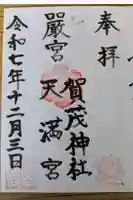 奉拝
賀茂神社
嚴宮天満宮
令和七年十二月三日